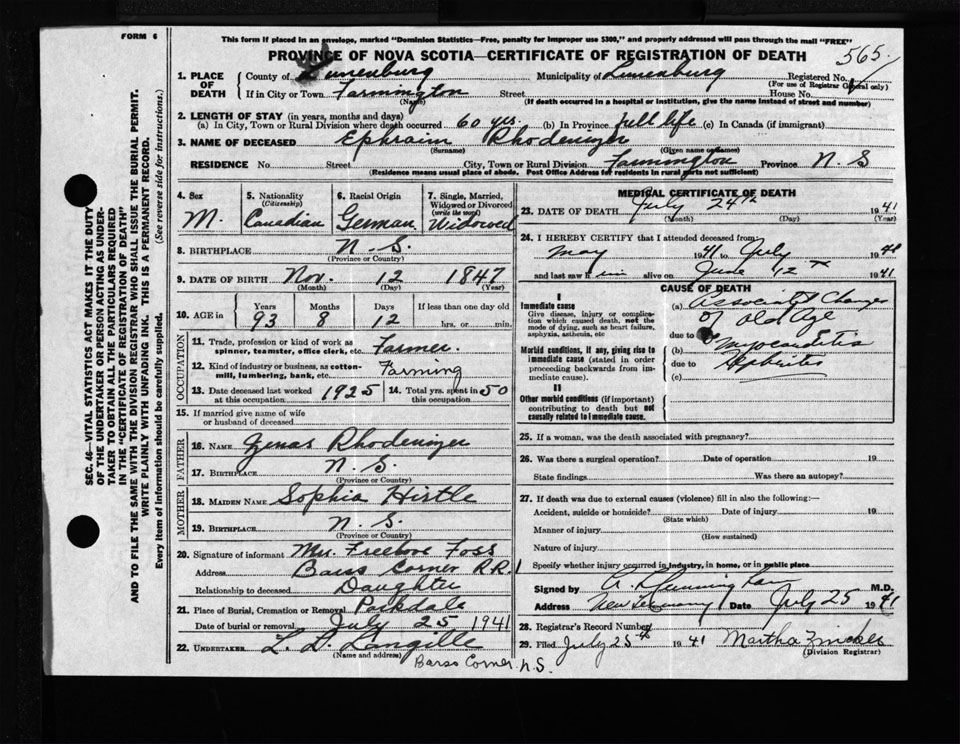 FORM 6
This form If placed in an envelope, marked "Dominion Statistics—Free, penalty for improper use $300," and properly addressed will pass through the mail "FREE"
PROVINCE OF NOVA SCOTIA—CERTIFICATE OF REGISTRATION OF DEATH
565
1. PLACE OF DEATH
County of Lunenburg Municipality of Lunenburg Registered No.
(For use of Registrar General only)
If in City or Town Farmington Street House No.
(Name) (If death occurred in a hospital or institution, give the name instead of street and number)
2. LENGTH OF STAY (in years, months and days)
(a) In City, Town or Rural Division where death occurred 60 yrs. (b) In Province full life (c) In Canada (if immigrant)
3. NAME OF DECEASED Ephraim Rhodenizer
(Surname) (Given name or names)
RESIDENCE No. Street City, Town or Rural Division Farmington Province N S
(Residence means usual place of abode. Post Office Address for residents in rural parts not sufficient)
4. Sex M.
5. Nationality (Citizenship) Canadian
6. Racial Origin German
7. Single, Married, Widowed or Divorced (write the word) Widowed
8. BIRTHPLACE N. S.
(Province or Country)
9. DATE OF BIRTH Nov. 12 1847
(Month) (Day) (Year)
10. AGE in Years 93 Months 8 Days 12 If less than one day old hrs. or min.
OCCUPATION
11. Trade, profession or kind of work as spinner, teamster, office clerk, etc. Farmer.
12. Kind of industry or business, as cotton-mill, lumbering, bank, etc. Farming
13. Date deceased last worked at this occupation 1925 14. Total yrs. spent in this occupation 50
15. If married give name of wife or husband of deceased
FATHER
16. NAME Zenas Rhodenizer
17. BIRTHPLACE N. S.
(Province or Country)
MOTHER
18. MAIDEN NAME Sophia Hirtle
19. BIRTHPLACE N. S.
(Province or Country)
20. Signature of informant Mrs. Freelove Foss
Address Barss Corner R.R. 1
Relationship to deceased Daughter
21. Place of Burial, Cremation or Removal Parkdale
Date of burial or removal July 25 1941
22. UNDERTAKER L. L. Langille
(Name and address)
Barss Corner N.S.
MEDICAL CERTIFICATE OF DEATH
23. DATE OF DEATH July 24th 1941
(Month) (Day) (Year)
24. I HEREBY CERTIFY that I attended deceased from:
May 1941 to July 19
and last saw him alive on June 12 1941
CAUSE OF DEATH
I
Immediate cause
Give disease, injury or complication which caused death, not the mode of dying, such as heart failure, asphyxia, asthenia, etc
(a) Associated Changes of Old Age
due to
Morbid conditions, if any, giving rise to immediate cause (stated in order proceeding backwards from immediate cause).
(b) Myocarditis
due to Nephritis
(c)
II
Other morbid conditions (if important) contributing to death but not causally related to immediate cause.
25. If a woman, was the death associated with pregnancy?
26. Was there a surgical operation? Date of operation 19
State findings Was there an autopsy?
27. If death was due to external causes (violence) fill in also the following:—
Accident, suicide or homicide? Date of injury 19
(State which)
Manner of injury
(How sustained)
Nature of injury
Specify whether injury occurred in Industry, in home, or in public place
Signed by M.D.
Address New Germany Date July 25 1941
28. Registrar's Record Number
29. Filed July 25th 1941 Martha
(Division Registrar)
SEC. 46—VITAL STATISTICS ACT MAKES IT THE DUTY
OF THE UNDERTAKER OR PERSON ACTING AS UNDER-
TAKER TO OBTAIN ALL THE PARTICULARS REQUIRED
IN THE "CERTIFICATE OF REGISTRATION OF DEATH"
AND TO FILE THE SAME WITH THE DIVISION REGISTRAR WHO SHALL ISSUE THE BURIAL PERMIT.
WRITE PLAINLY WITH UNFADING INK. THIS IS A PERMANENT RECORD.
Every item of information should be carefully supplied. (See reverse side for instructions.)